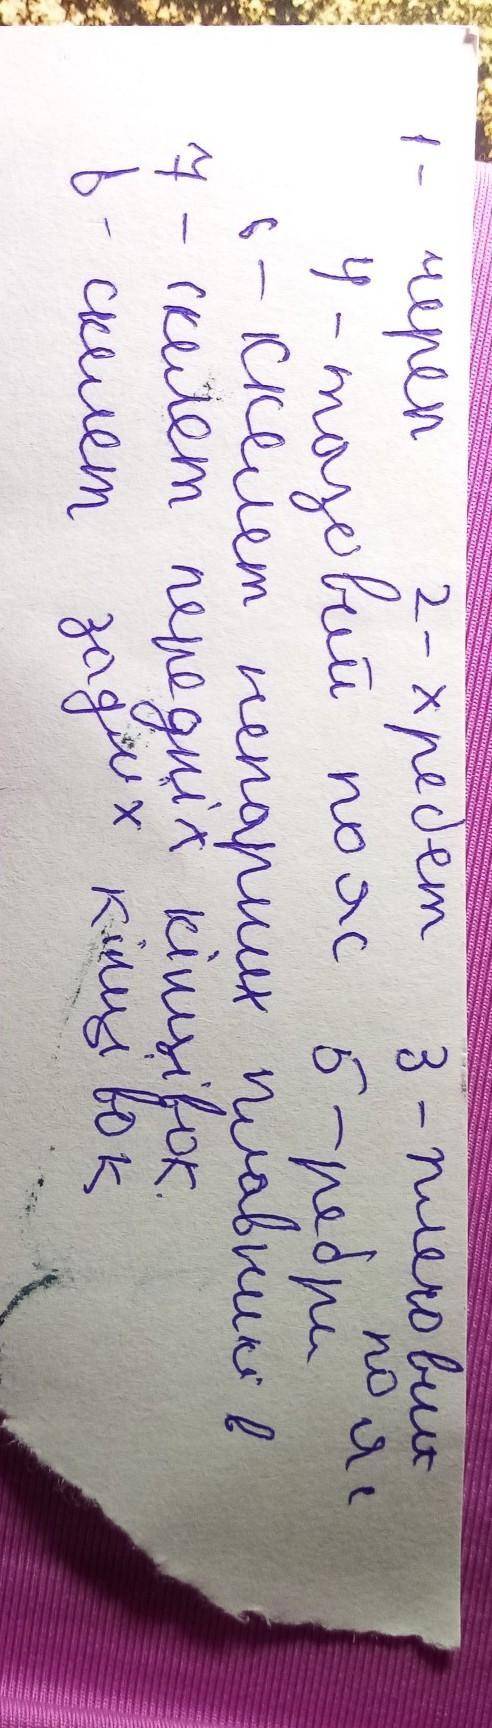 1 - череп 2 - хребет 3 - плечовий
пояс
4 - тазовий пояс 5 - ребри
6 - скелет непарних плавників
7 - скелет передніх кінцівок.
в - скелет задніх кінцівок